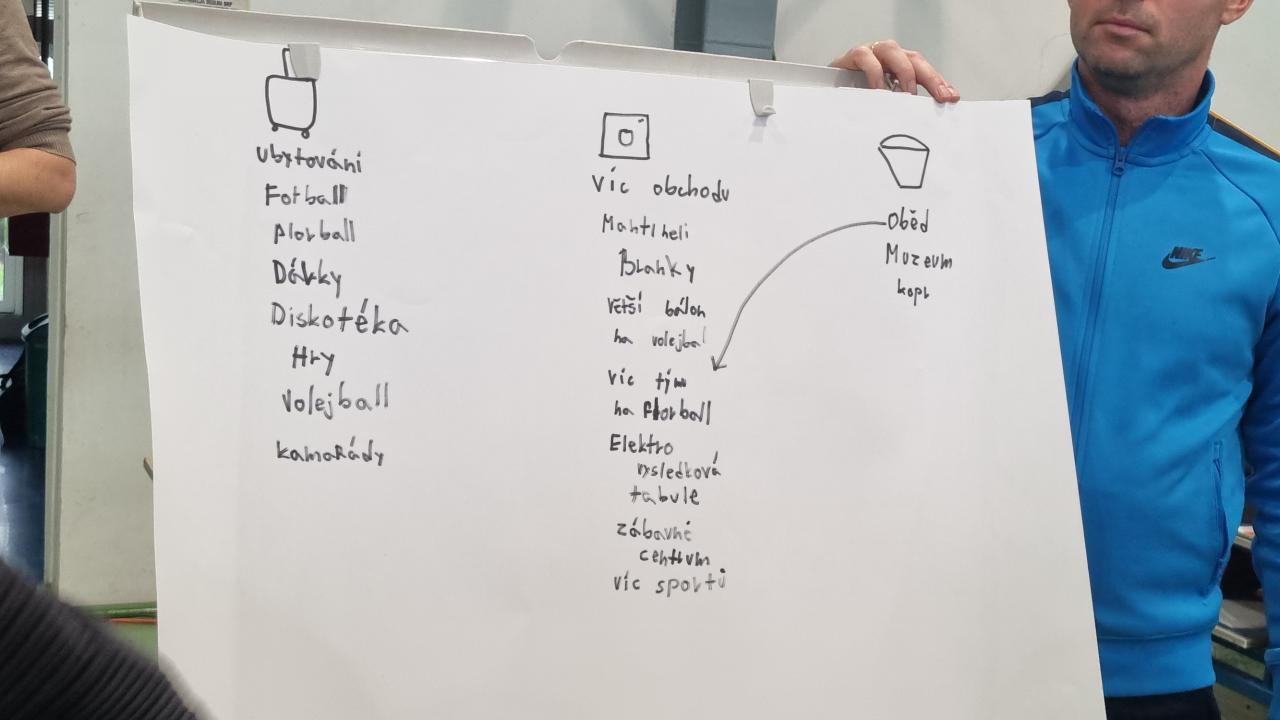 ubytování
Fotball
Florball
Dárky
Diskotéka
Hry
Volejball
kamarády
víc obchodu
Mantineli
Branky
větší balon
na volejbal
víc tým
na florball
Elektro
výsledková
tabule
zábavné
centrum
víc sportů
Oběd
Muzeum
NIKE